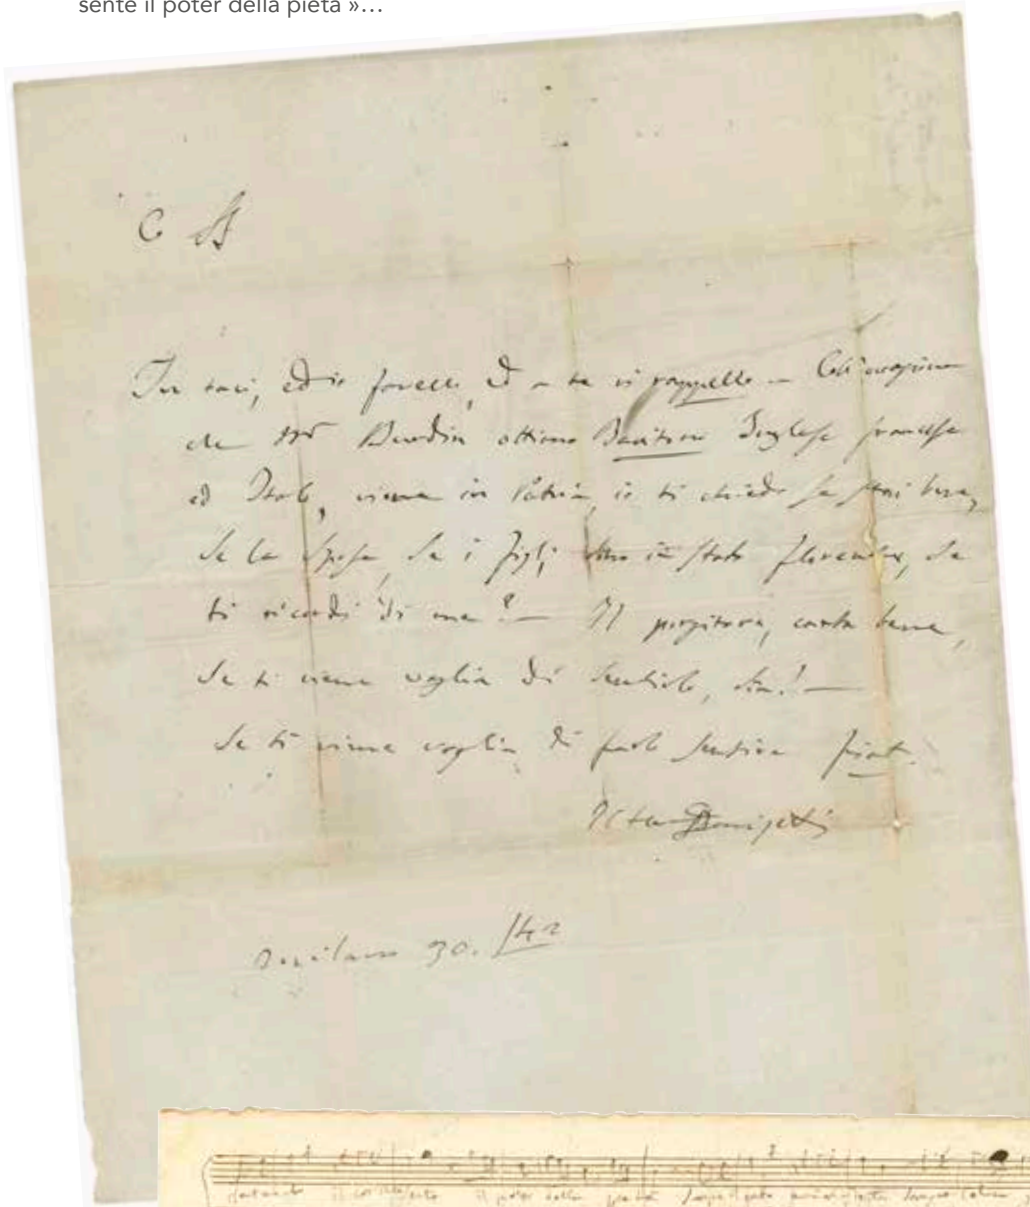 sente il poter della pietà »…
C
Tu taci, ed io favello, ed a te mi rappello – Coll'occasione
che Mr Burdin ottimo Baritono Inglese francese
ed Italo, viene in Patria, io ti chiedo se stai bene,
Se la Sposa, Se i figli sono in stato florente, Se
ti ricordi di me? — Il porgitore, canta bene,
Se ti viene voglia di Sentirlo, Sia! —
Se ti viene voglia di farlo Sentire fiat.
Donizetti
Milano 30. /42
il poter della pietà